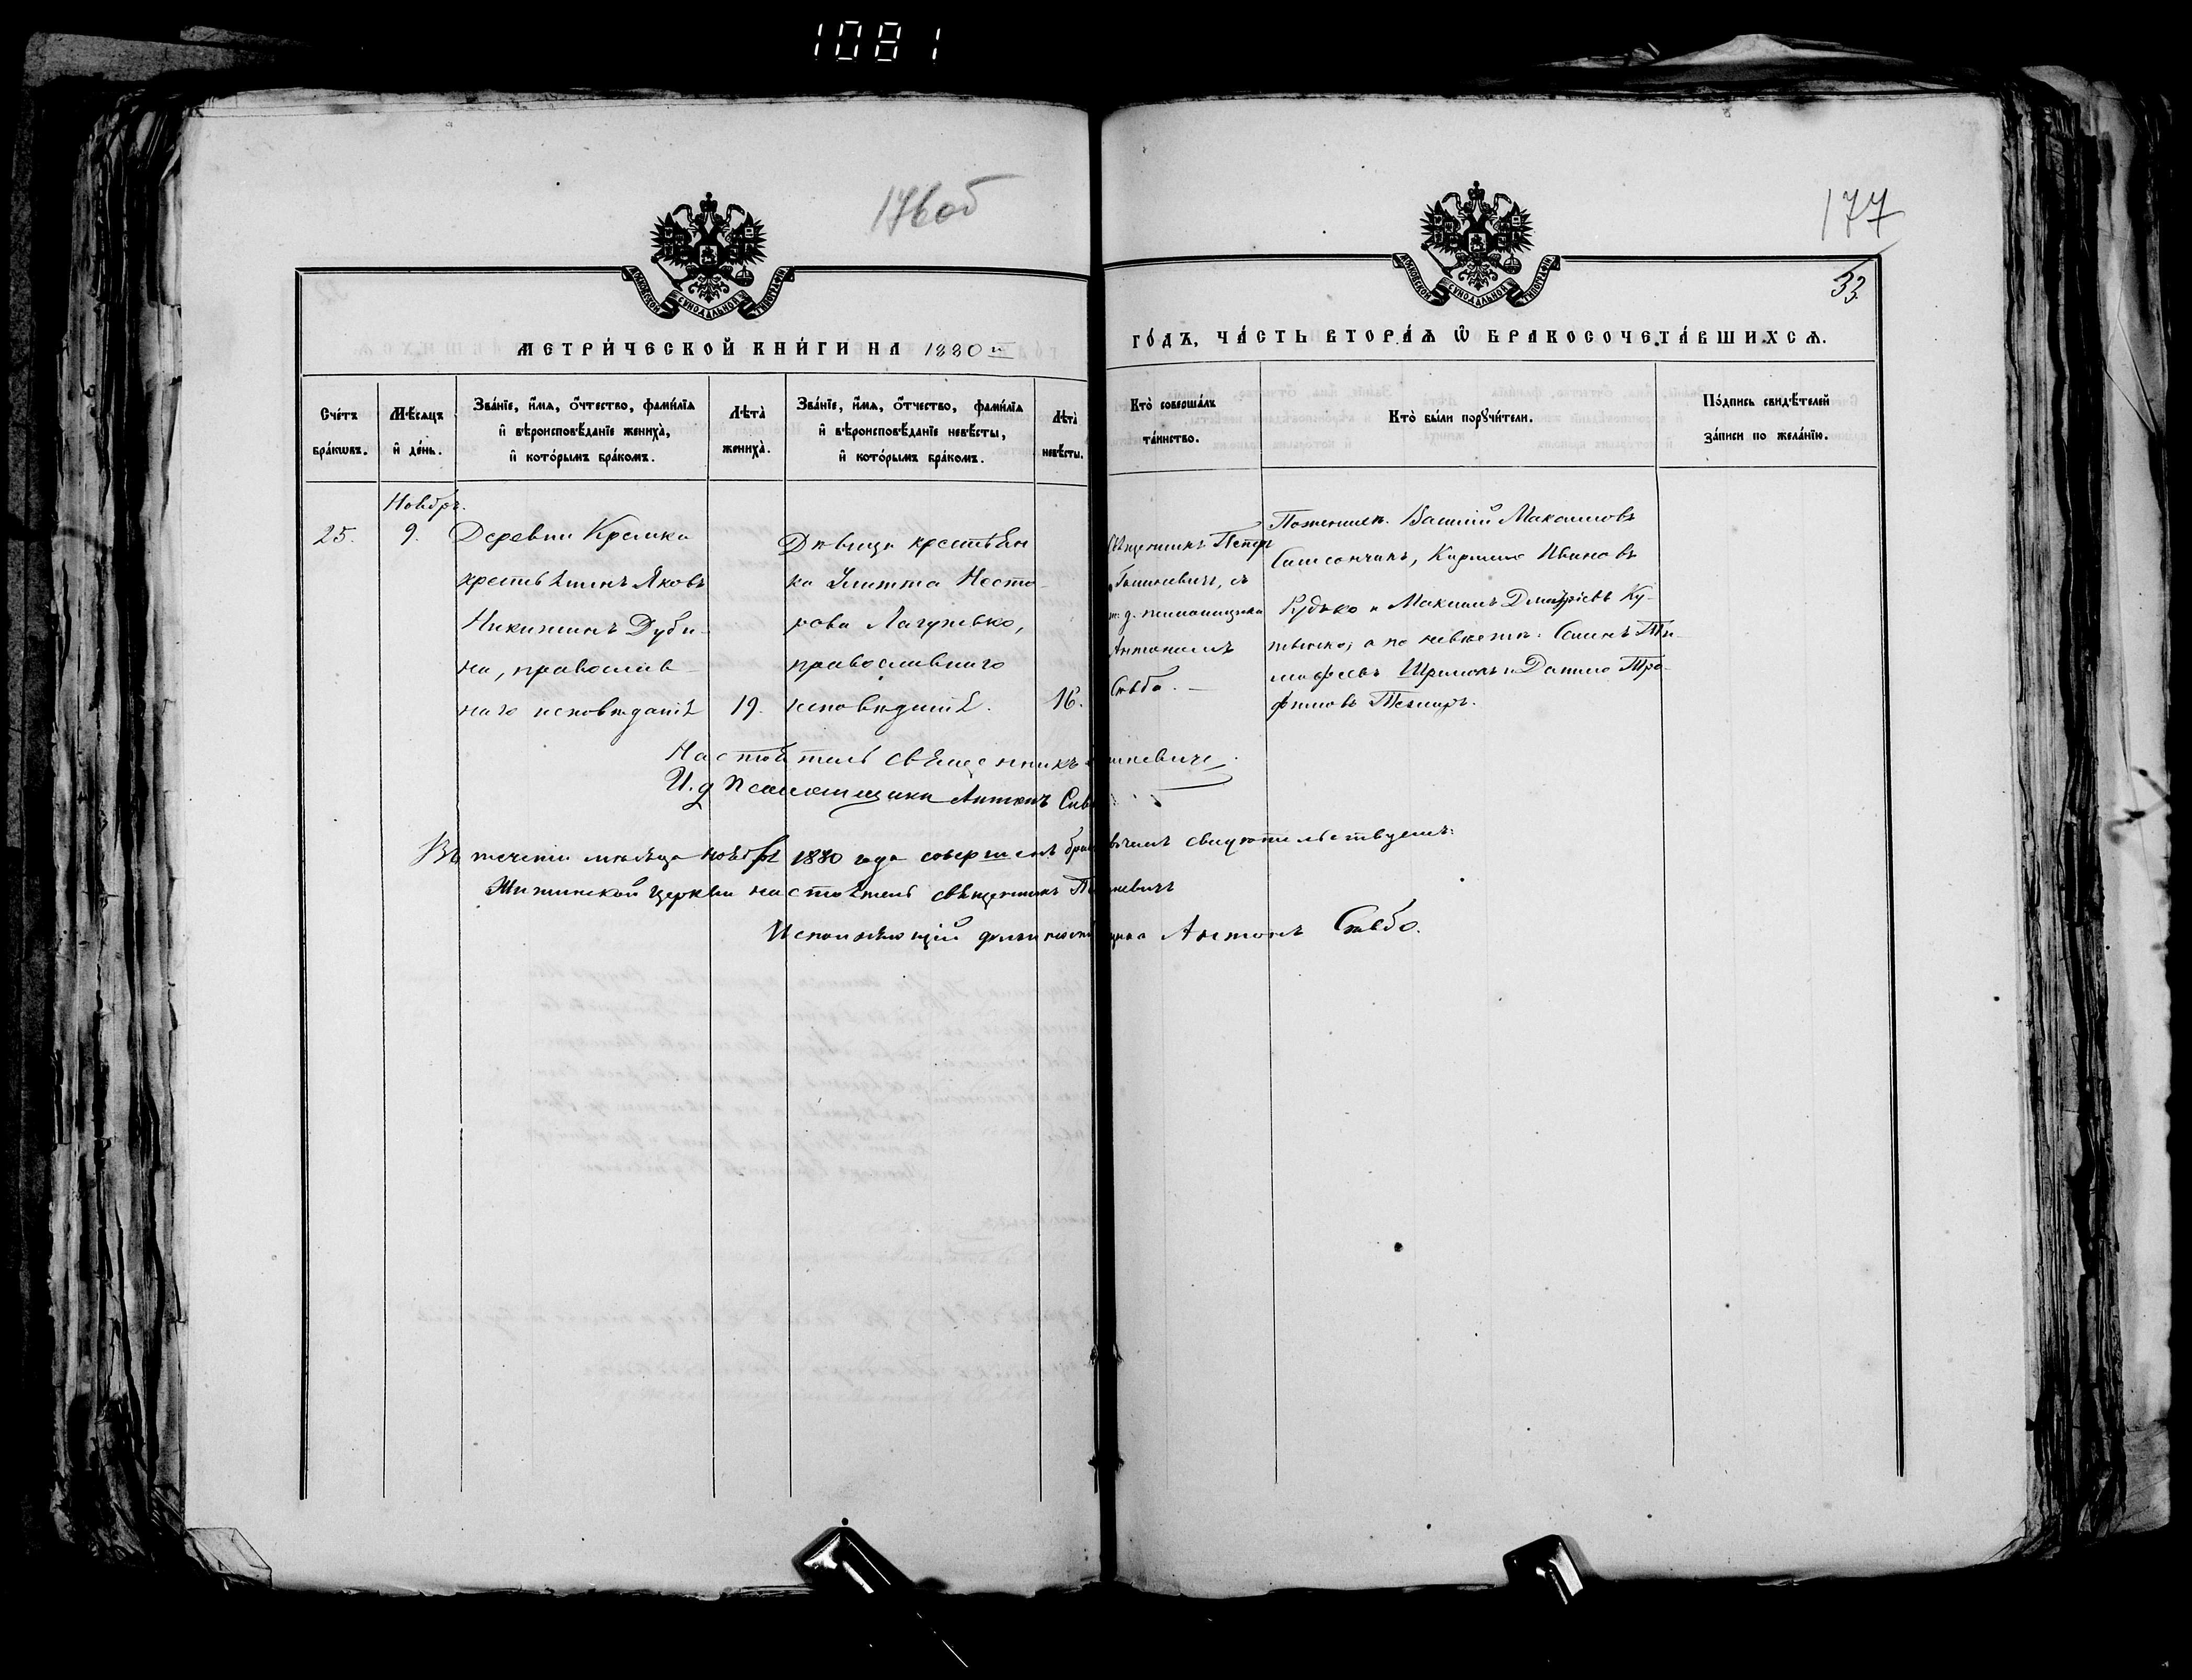 1081
176об
177
33.
МОСКОВСКОЙ СѴНОДАЛЬНОЙ ТИПОГРАФІИ
МОСКОВСКОЙ СѴНОДАЛЬНОЙ ТИПОГРАФІИ
МЕТРИ́ЧЕСКОЙ КНИ́ГИ НА 1880 й
ГО́ДЪ, ЧА́СТЬ ВТОРА́Ѧ Ѽ БРАКОСОЧЕТА́ВШИХСѦ.
Сче́тъ бра́кѡвъ.
Мѣ́сѧцъ и҆ де́нь.
Зва́нїе, и҆́мѧ, ѻ҆́тчество, фамі́лїѧ
и҆ вѣроисповѣ́данїе жениха̀,
и҆ кото́рымъ бра́комъ.
Лѣта̀ жениха̀.
Зва́нїе, и҆́мѧ, ѻ҆́тчество, фамі́лїѧ
и҆ вѣроисповѣ́данїе невѣ́сты,
и҆ кото́рымъ бра́комъ.
Лѣта̀ невѣ́сты.
Кто̀ соверша́лъ
та́инство.
Кто̀ бы́ли порꙋчи́тели.
По́дпись свидѣ́телей
за́писи по жела́нїю.
25.
Ноябрь.
9.
Деревни
крестьянинъ Яковъ
Никитинъ Дуби-
на, православ-
наго исповѣданія
19.
Дѣвица крестьян
ка Улитта Несто-
рова
православнаго
исповѣданія.
16.
Священникъ Петръ
съ
и. д. псаломщика
Антономъ
Сѣвбо.
Василій Максимовъ
Самсончикъ, Кириллъ Ивановъ
Рудько и Максимъ Дмитріевъ Ку-
а по невѣстѣ: Семенъ Ти-
мофеевъ и Данило Тро-
фимовъ
Настоятель священникъ
И. д. Псаломщика Антонъ
Въ теченіи мѣсяца ноября 1880 года въ чемъ свидѣтельствуемъ:
церкви настоятель священникъ
Исполняющій Антонъ Сѣвбо.